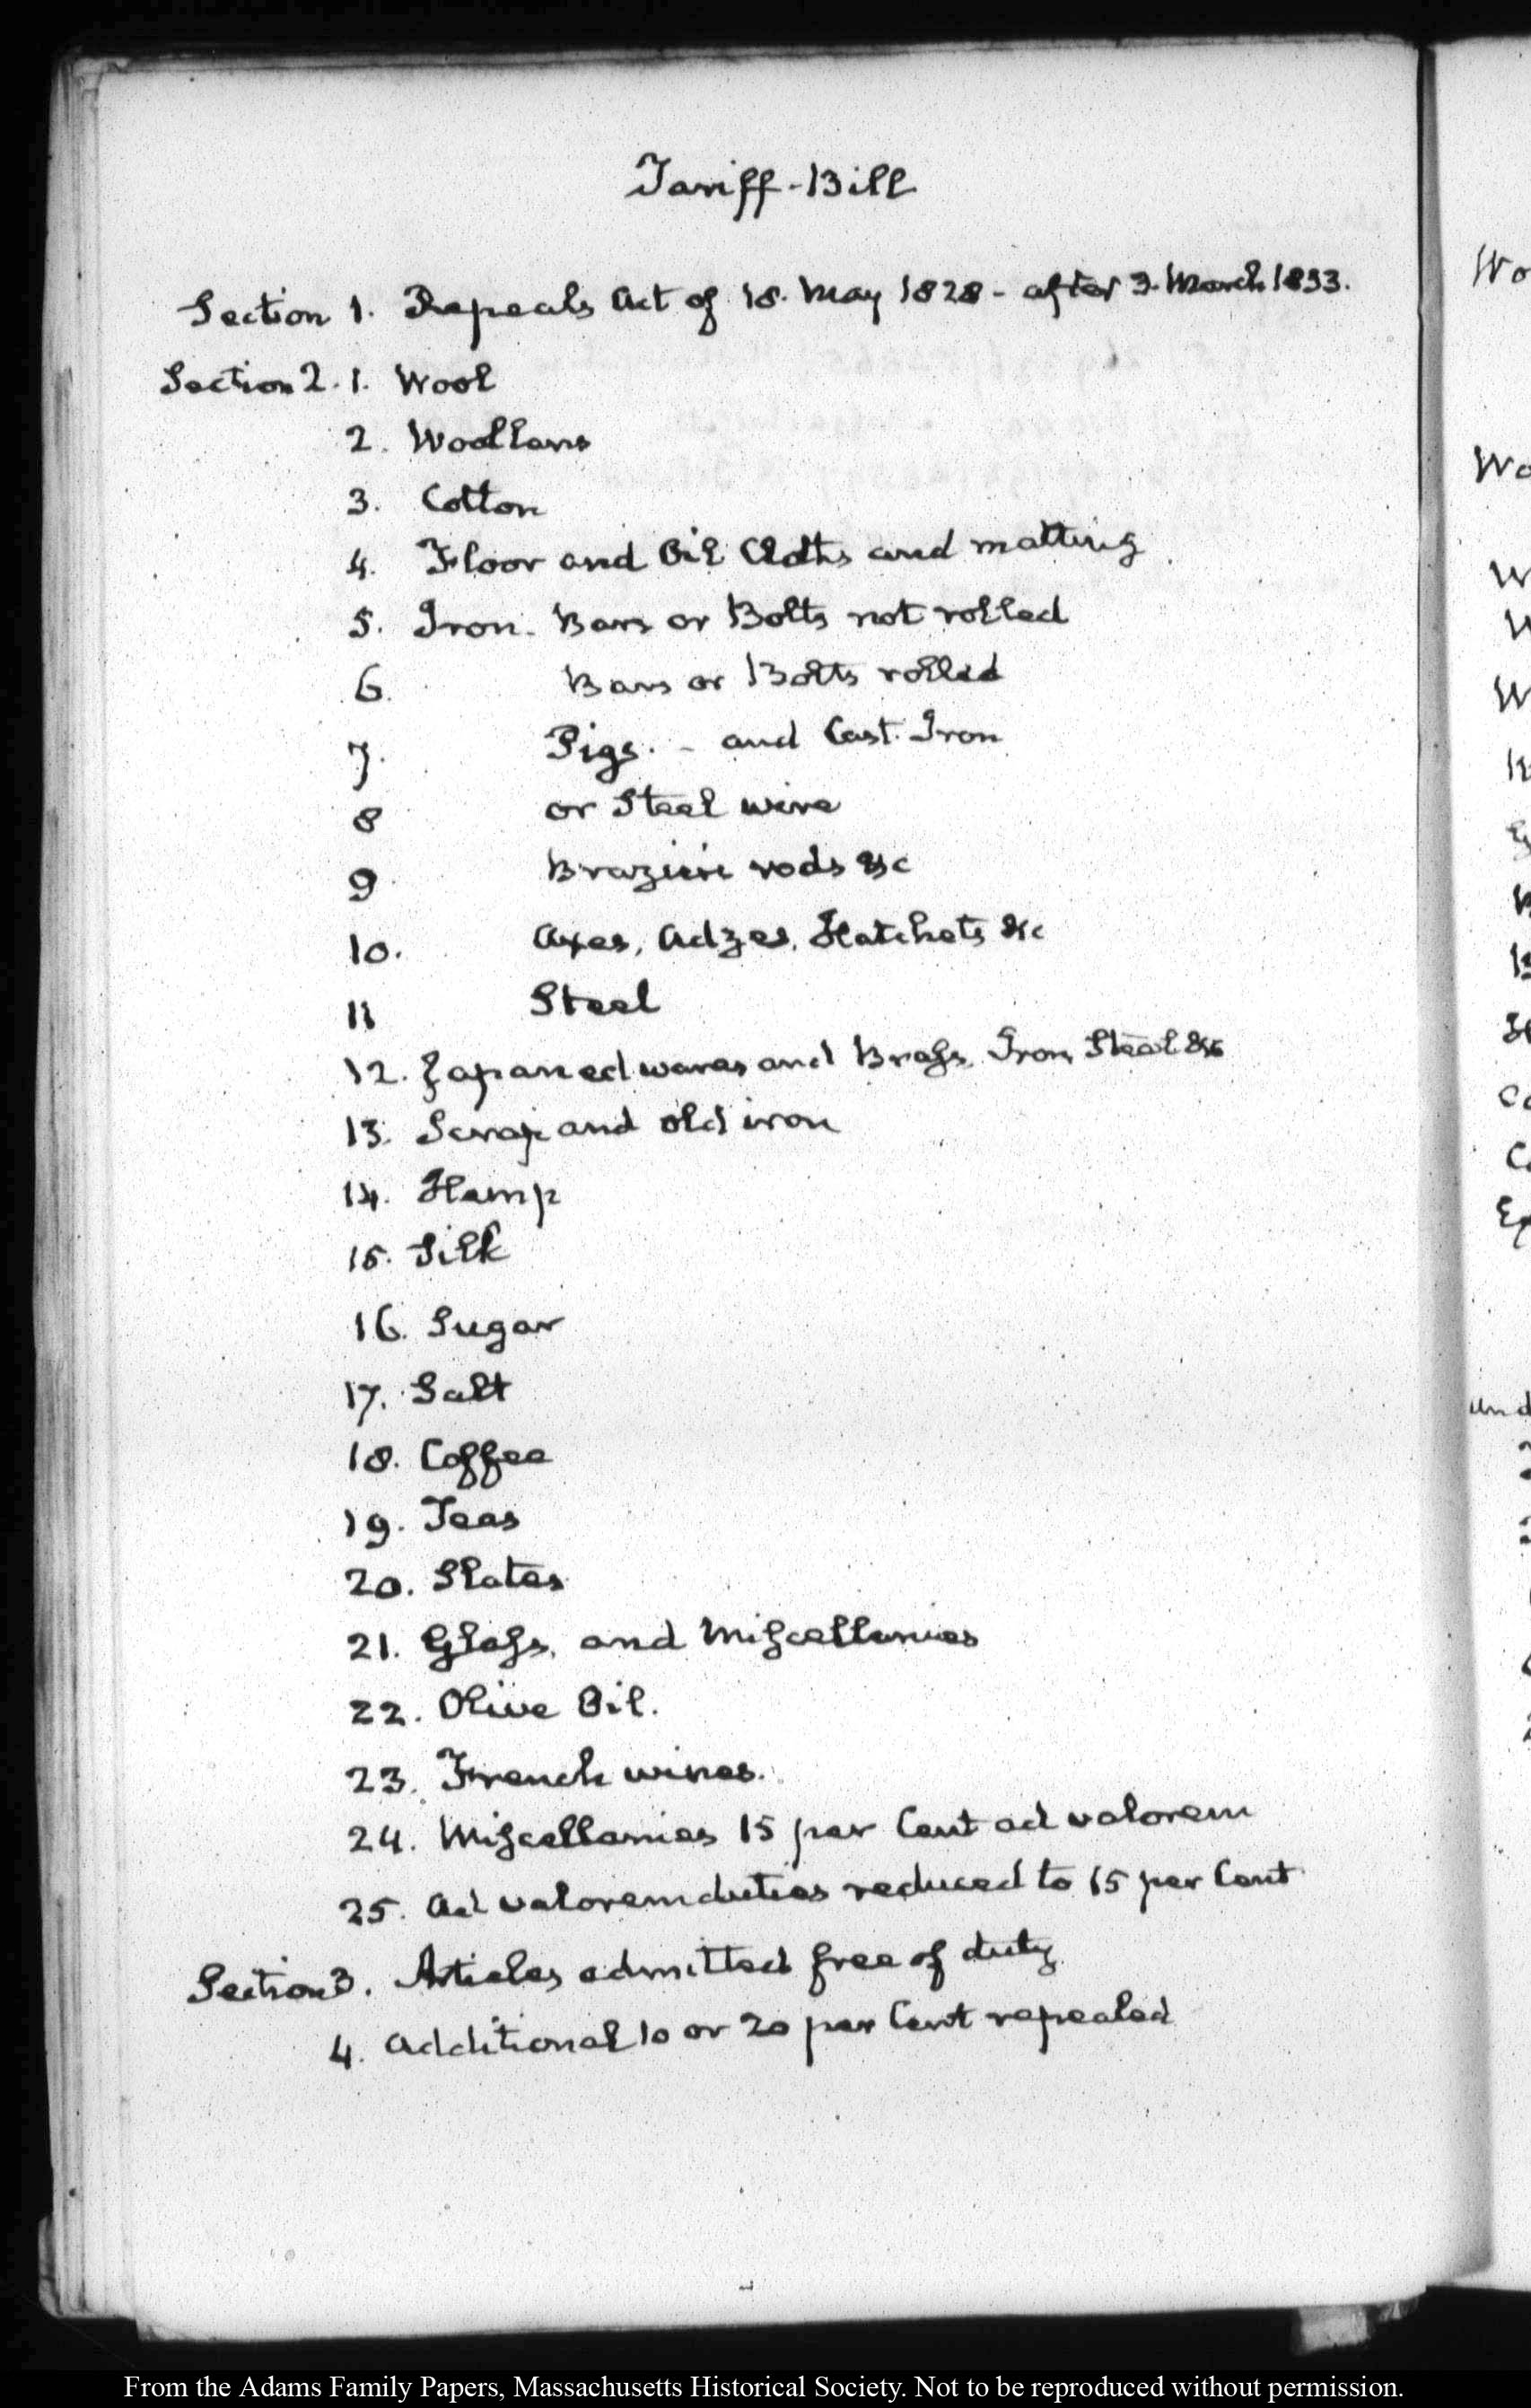 Tariff-Bill
Section 1. Repeals Act of 18. May 1828 - after 3. March 1833.
Section 2. 1. Wool
2. Woollens
3. Cotton
4. Floor and Oil Cloths and matting
5. Iron. Bars or Bolts not rolled
6. Bars or Bolts rolled
7. Pigs. - and Cast. Iron
8 or Steel wire
9 rods &c
10. Axes, Adzes, Hatchets &c
11 Steel
12. Japaned wares and Brass, Iron, Steel &c
13. Scrap and old iron
14. Hemp
15. Silk
16. Sugar
17. Salt
18. Coffee
19. Teas
20. Slates
21. Glass, and Miscellanies
22. Olive Oil.
23. French wines.
24. Miscellanies 15 per Cent ad valorem
25. Ad valorem duties reduced to 15 per Cent
Section 3. Articles admitted free of duty
4. Additional 10 or 20 per Cent repealed
Wo
Wo
W
W
W
Co
Und
From the Adams Family Papers, Massachusetts Historical Society. Not to be reproduced without permission.